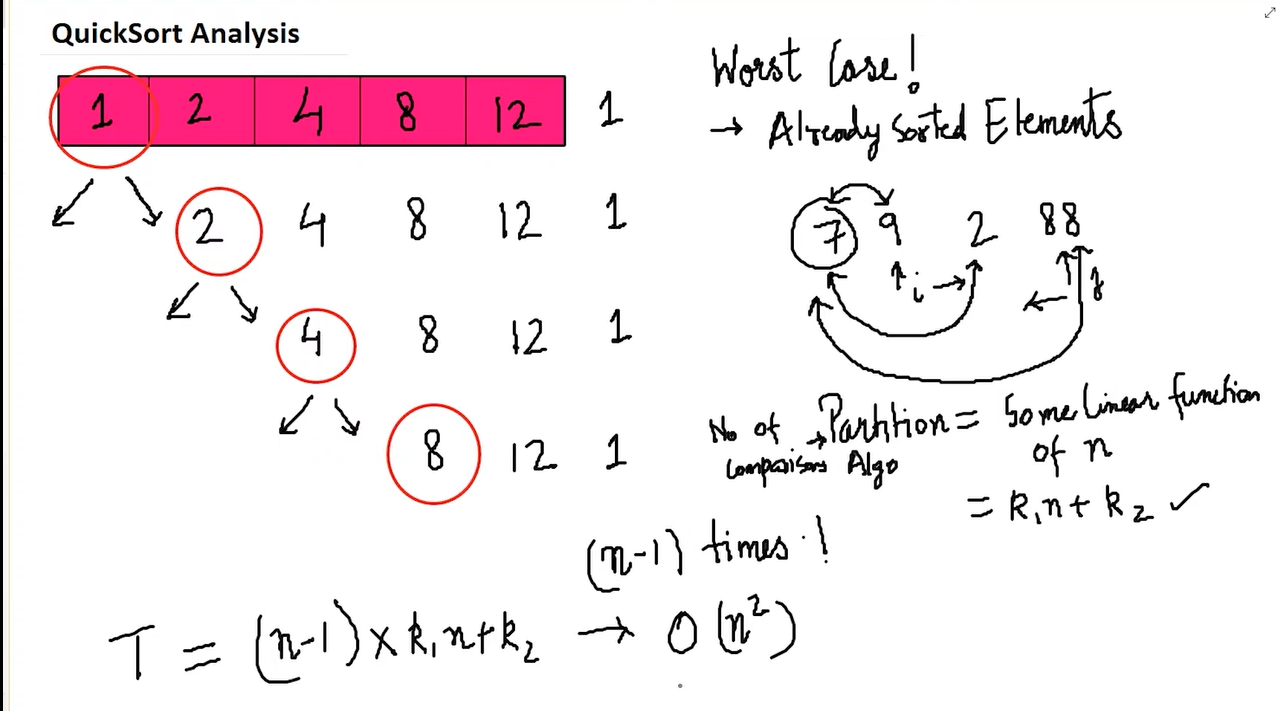 QuickSort Analysis
1 2 4 8 12 1
2 4 8 12 1
4 8 12 1
8 12 1
Worst Case!
→ Already Sorted Elements
7 9 2 88
i j
No of comparisons → Partition Algo = Some linear function of n
= k₁n + k₂ ✓
(n-1) times!
T = (n-1) × k₁n + k₂ → O(n²)